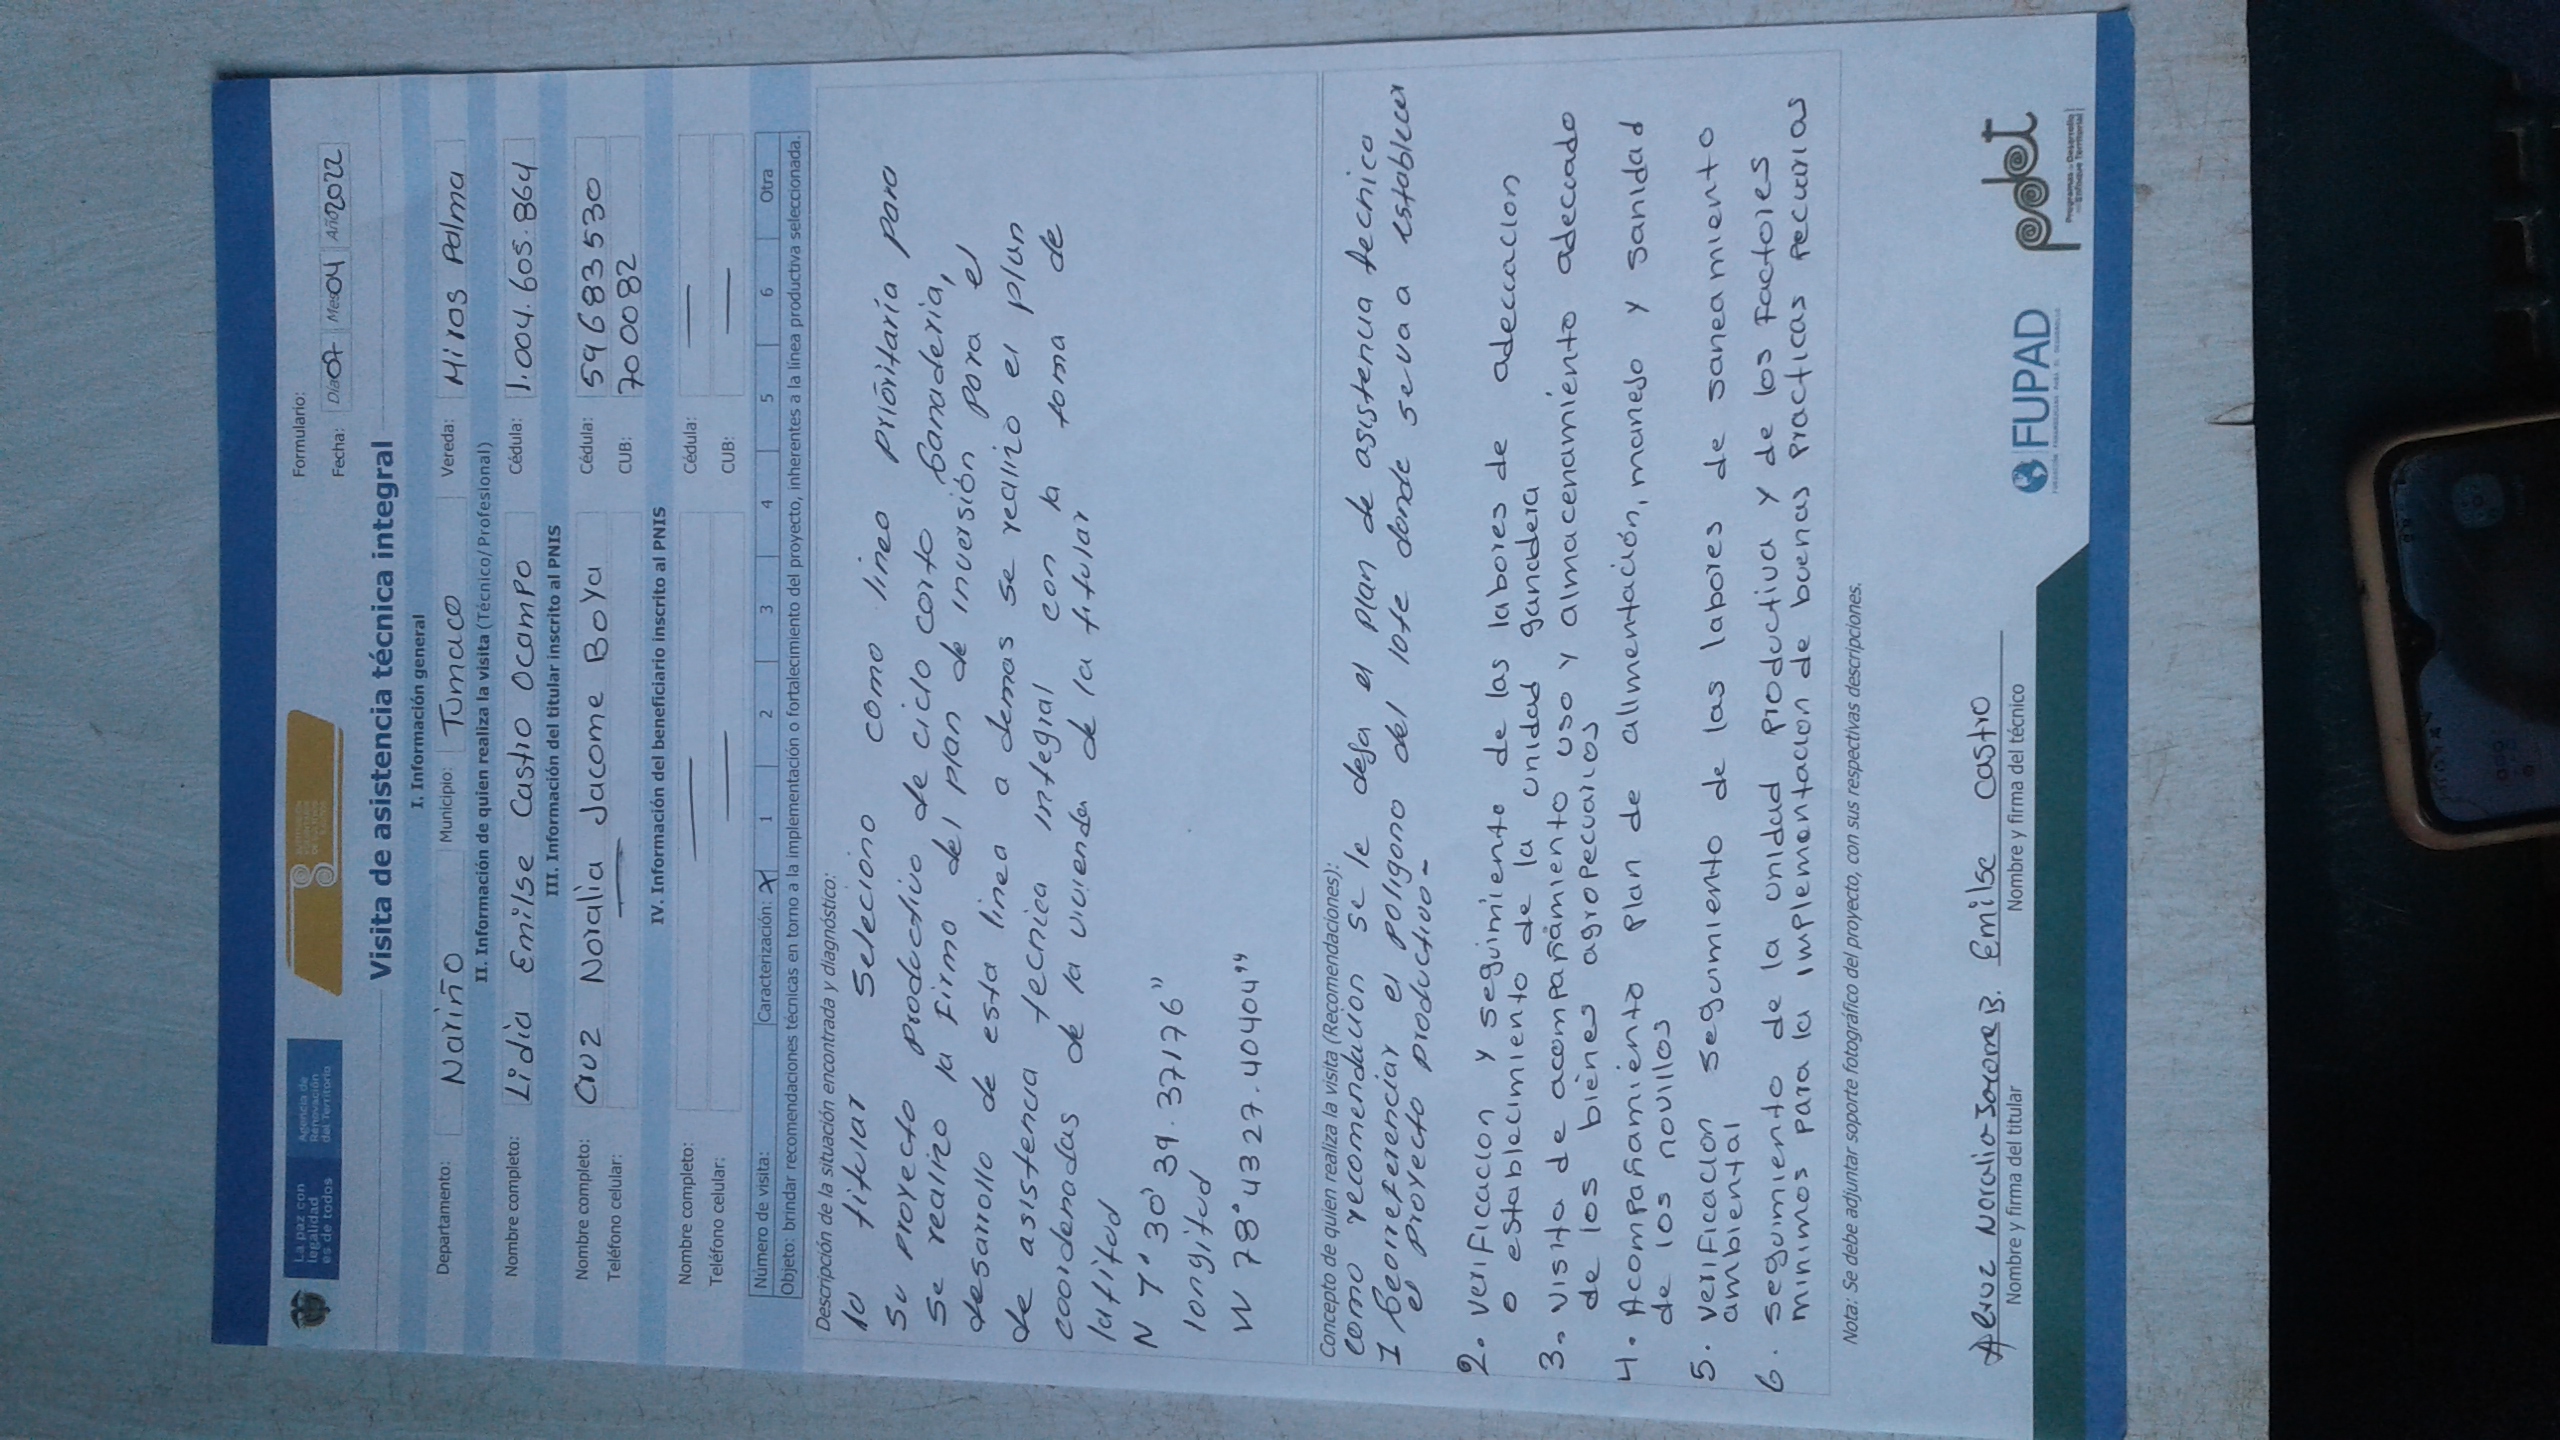 La paz con
legalidad
es de todos
Agencia de
Renovación
del Territorio
Formulario:
Fecha: Día 07 Mes 04 Año 2022
Visita de asistencia técnica integral
I. Información general
Departamento: Nariño Municipio: Tumaco Vereda: Miras Palma
II. Información de quien realiza la visita (Técnico/Profesional)
Nombre completo: Lidia Emilse Castro Ocampo Cédula: 1.004.605.864
III. Información del titular inscrito al PNIS
Nombre completo: Cruz Noralia Jacome Boya Cédula: 59683530
Teléfono celular: — CUB: 700082
IV. Información del beneficiario inscrito al PNIS
Nombre completo: — Cédula: —
Teléfono celular: — CUB: —
Número de visita: Caracterización: X 1 2 3 4 5 6 Otra
Objeto: brindar recomendaciones técnicas en torno a la implementación o fortalecimiento del proyecto, inherentes a la línea productiva seleccionada.
Descripción de la situación encontrada y diagnóstico:
la titular seleciono como linea prioritaria para
su proyecto productivo de ciclo corto Ganaderia,
se realizo la firma del plan de inversión para el
desarrollo de esta linea a demas se realizo el plan
de asistencia tecnica integral con la toma de
coordenadas de la vivienda de la titular
latitud
N 1° 30' 39.37176"
longitud
W 78° 43 27.40404"
Concepto de quien realiza la visita (Recomendaciones):
como recomendacion se le deja el plan de asistencia tecnico
1 Georeferenciar el poligono del lote donde se va a establecer
el proyecto productivo-
2. verificacion y seguimiento de las labores de adecuacion
o establecimiento de la unidad ganadera
3. visita de acompañamiento uso y almacenamiento adecuado
de los bienes agropecuarios
4. Acompañamiento plan de alimentación, manejo y sanidad
de los novillos
5. verificacion seguimiento de las labores de saneamiento
ambiental
6. seguimiento de la unidad productiva y de los factores
minimos para la implementacion de buenas practicas pecuarias
Nota: Se debe adjuntar soporte fotográfico del proyecto, con sus respectivas descripciones.
Cruz Noralia Jacome B. Emilse castro
Nombre y firma del titular Nombre y firma del técnico
FUPAD
pdet
Programas de Desarrollo
con Enfoque Territorial